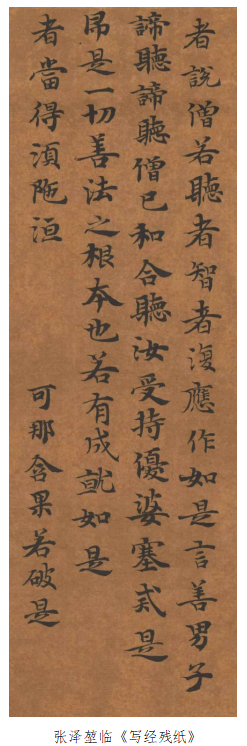 者說僧若聽者智者復應作如是言善男子
諦聽諦聽僧已和合聽汝受持優婆塞戒是
即是一切善法之根本也若有成就如是
者當得須陁洹 可那含果若破是
张泽堃临《写经残纸》